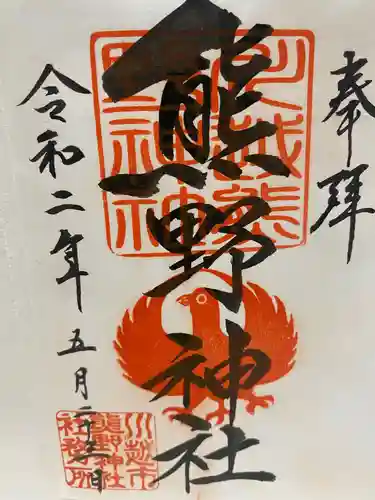 奉拝
川越熊
野神社
熊野神社
令和二年五月
日
川越市
熊野神社
社務所